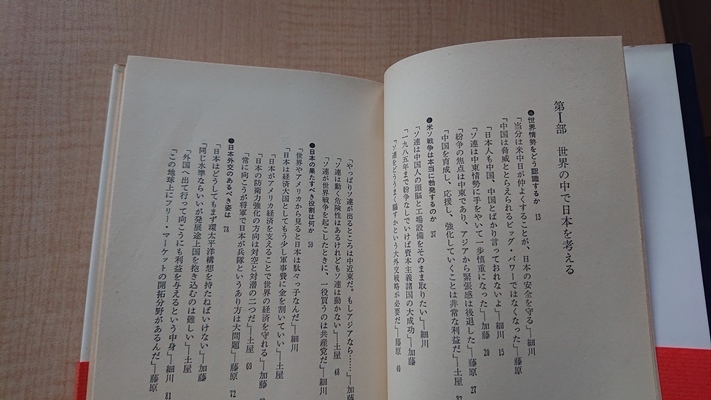 第Ⅰ部　世界の中で日本を考える
●世界情勢をどう認識するか　13
「当分は米中日が仲よくすることが、日本の安全を守る」―細川
「中国は脅威ととらえられるビッグ・パワーではなくなった」―藤原
「日本人も中国、中国とばかり言っておれないよ」―細川　15
「ソ連は中東情勢に手をやいて一歩慎重になった」―加藤　20
「紛争の焦点は中東であり、アジアから緊張感は後退した」―藤原　27
「中国を育成し、応援し、強化していくことは非常な利益だ」―土屋
●米ソ戦争は本当に勃発するのか　37
「ソ連は中国人の頭脳と工場設備をそのまま取りたい」―細川
「一九八五年まで紛争なしでいけば資本主義諸国の大成功」―加藤
「ソ連をどううまく騙すかという大外交戦略が必要だ」―藤原　40
「やっぱりソ連が出るところは中近東だ。もしアジアなら……」―加藤
「ソ連は動く危険性はあるけれどもソ連は動かない」―土屋　48
「ソ連が世界戦争を起こしたときに、一役買うのは共産党だ」―細川
●日本の果たすべき役割は何か　59
「世界やアメリカから見ると日本は駄々っ子なんだ」―細川
「日本は経済大国としてもう少し軍事費に金を割いていい」―土屋
「日本がアメリカ経済を支えることで世界の経済を守れる」―加藤
「日本の防衛力強化の方向は対空と対潜の二つだ」―土屋　69
「常に向こうが将軍で日本が兵隊というあり方は大問題」―藤原　72
●日本外交のあるべき姿は　78
「日本はどうしてもまず環太平洋構想を持たねばいけない」―加藤
「同じ水準ならいいが発展途上国を抱き込むのは難しい」―土屋
「外国へ出て行って向こうにも利益を与えるという中身」―細川　81
「この地球上にフリー・マーケットの開拓分野があるんだ」―藤原